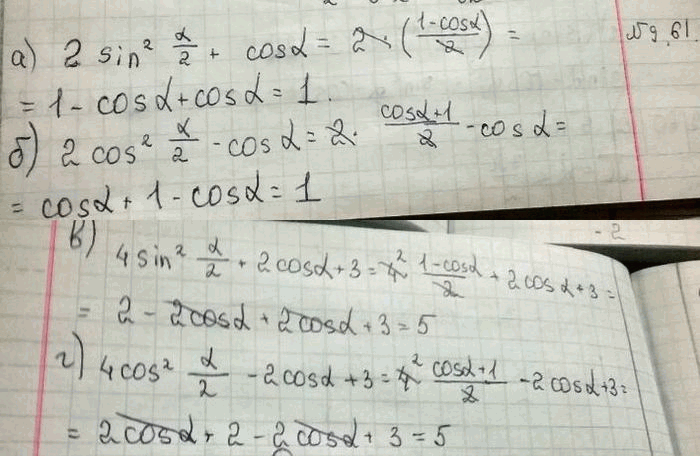 а) 2 sin² α/2 + cosα = 2·(1-cosα/2) =
№9.61.
= 1 - cosα + cosα = 1.
б) 2 cos² α/2 - cosα = 2· cosα+1/2 - cosα =
= cosα + 1 - cosα = 1
-2
в) 4 sin² α/2 + 2cosα + 3 = 4² 1-cosα/2 + 2cosα + 3 =
= 2 - 2cosα + 2cosα + 3 = 5
г) 4cos² α/2 - 2cosα + 3 = 4² cosα+1/2 - 2cosα + 3 =
= 2cosα + 2 - 2cosα + 3 = 5